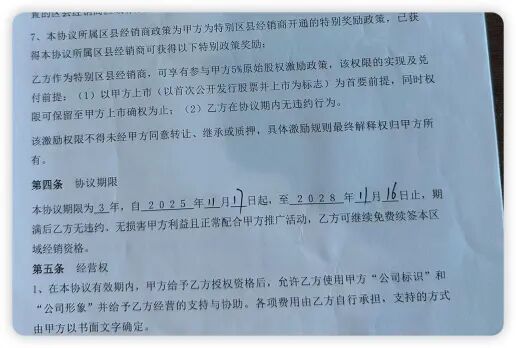 置的区县经销商
7、本协议所属区县经销商政策为甲方为特别区县经销商开通的特别奖励政策，已获
得本协议所属区县经销商可获得以下特别政策奖励：
乙方作为特别区县经销商，可享有参与甲方5%原始股权激励政策，该权限的实现及兑
付前提：（1）以甲方上市（以首次公开发行股票并上市为标志）为首要前提，同时权
限可保留至甲方上市确权为止；（2）乙方在协议期内无违约行为。
该激励权限不得未经甲方同意转让、继承或质押，具体激励规则最终解释权归甲方所
有。
第四条 协议期限
本协议期限为 3 年，自 2025 年 11 月 17 日起，至 2028 年 11 月 16 日止，期
满后乙方无违约、无损害甲方利益且正常配合甲方推广活动，乙方可继续免费续签本区
域经销资格。
第五条 经营权
1、在本协议有效期内，甲方给予乙方授权资格后，允许乙方使用甲方“公司标识”和
“公司形象”并给予乙方经营的支持与协助。各项费用由乙方自行承担，支持的方式
由甲方以书面文字确定。